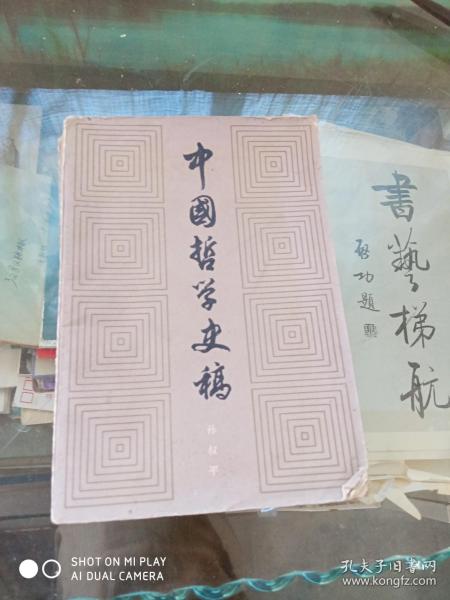 中國哲学史稿
孙叔平
書藝梯航
啓功題
SHOT ON MI PLAY
AI DUAL CAMERA
孔夫子旧书网
www.kongfz.com